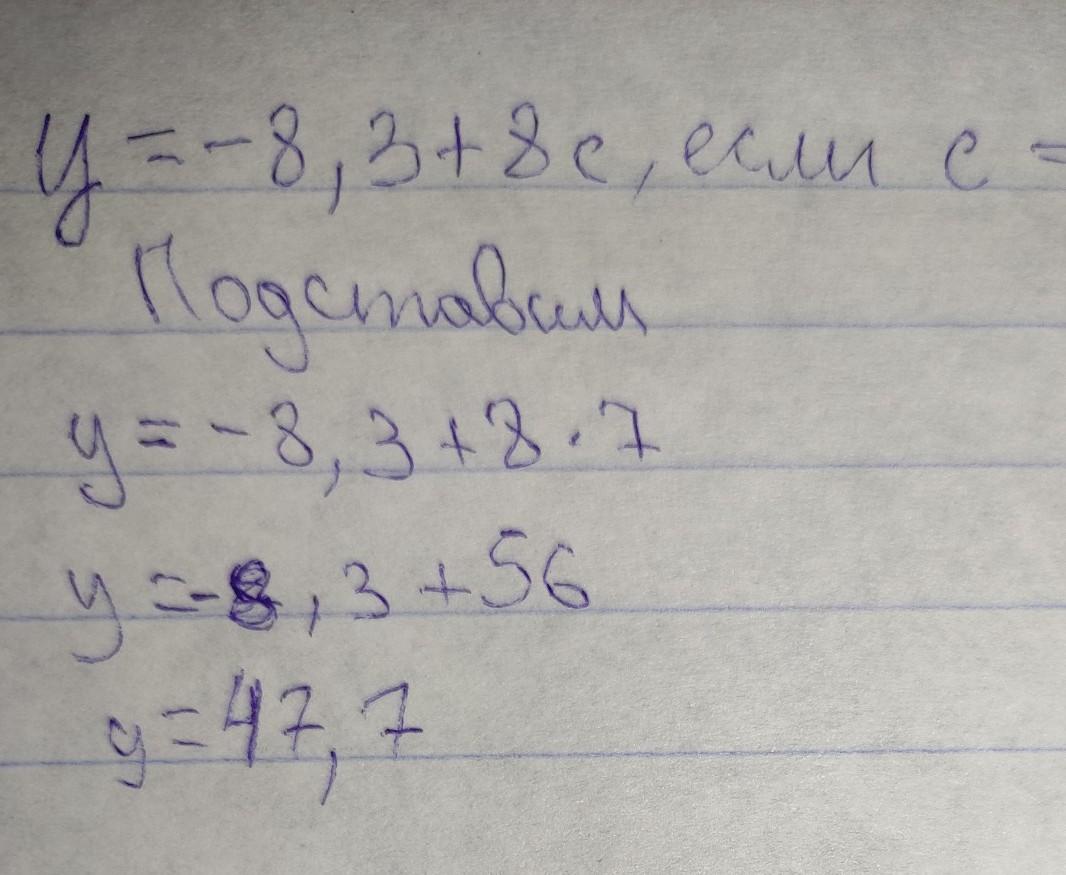 y = -8,3+8c, если c =
Подставим
y = -8,3+8·7
y = -8,3+56
y = 47,7